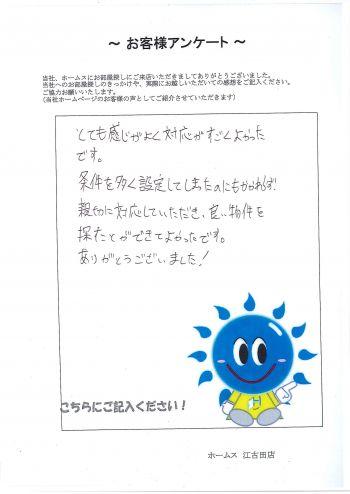 ～ お客様アンケート ～
当社、ホームスにお部屋探しにご来店いただきましてありがとうございました。
当社へのお部屋探しのきっかけや、実際にお越しいただいての感想をご記入ください。
ご協力お願いいたします。
(当社ホームページのお客様の声としてご紹介させていただきます)
とても感じがよく対応がすごくよかった
です。
条件を多く設定してしまったのにもかかわらず!
親切に対応していただき、良い物件を
探すことができてよかったです。
ありがとうございました!
H
こちらにご記入ください!
ホームス 江古田店